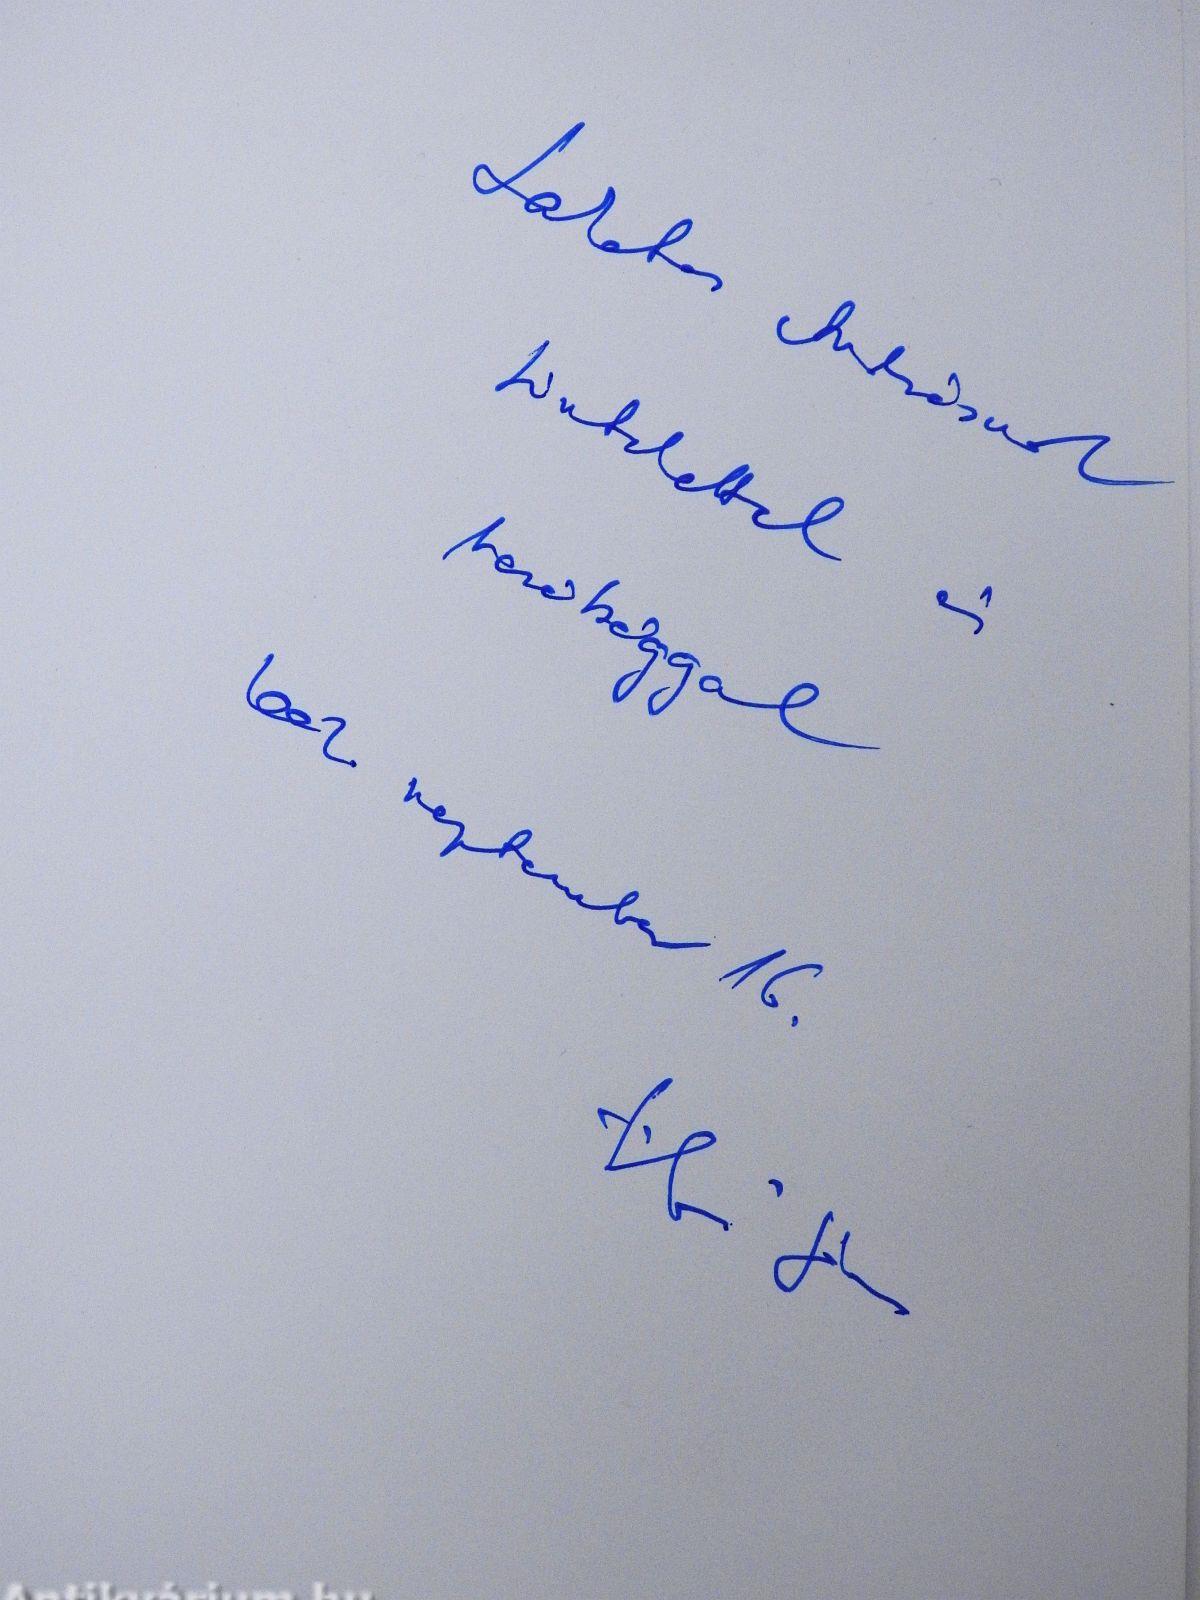 Lakatos Andrásnak
tisztelettel és
barátsággal
2002. szeptember 16.
Antikvárium.hu